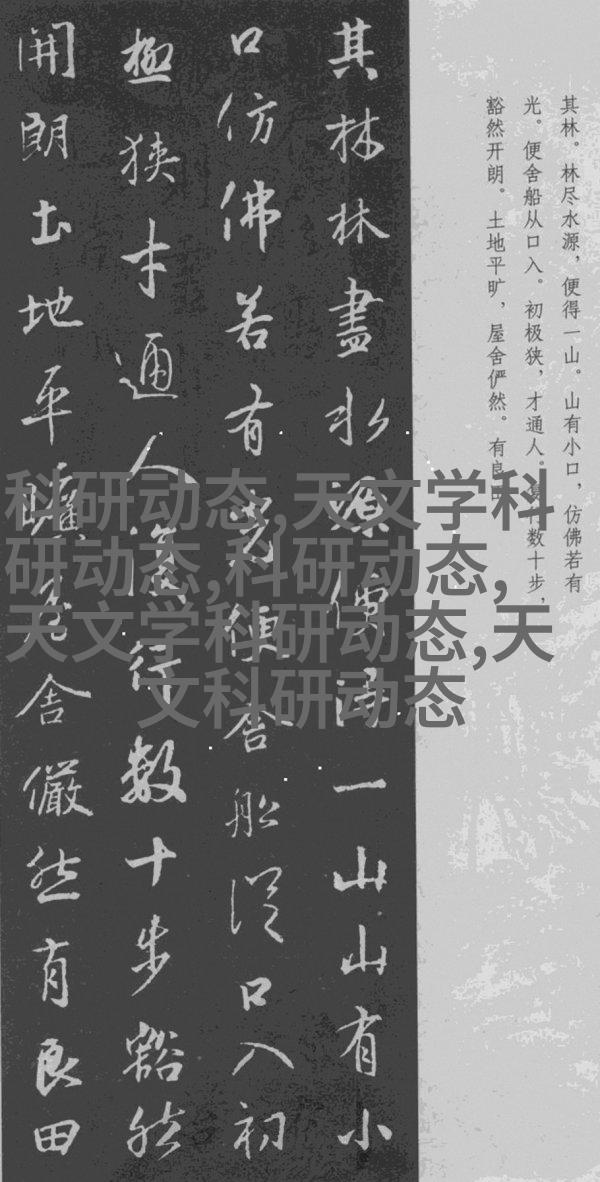 其林。林尽水源，便得一山。山有小口，仿佛若有
光。便舍船从口入。初极狭，才通人。复行数十步，
豁然开朗。土地平旷，屋舍俨然。有良田
其林林盡水源便得一山山有小
口仿佛若有光便舍船從口入初
極狭才通人復行數十步豁然
開朗土地平曠屋舍儼然有良田
科研动态,天文学科
研动态,科研动态,
天文学科研动态,天
文科研动态